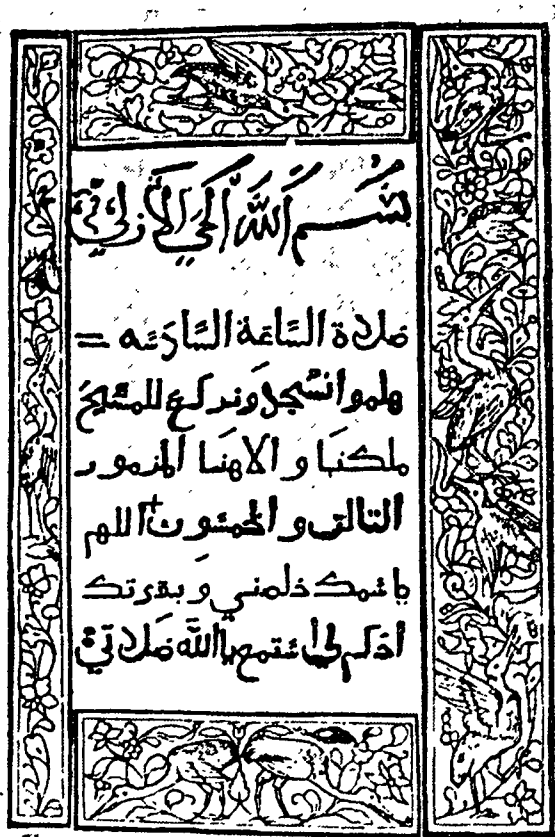 بسم الله الحي الازلي
صلاة الساعة السادسه =
هلموا نسجد ونركع للمسيح
ملكنا والاهنا المزمور
الثالث والخمسون اللهم
باسمك خلصني وبقوتك
أحكم لي أستمع يا الله صلاتي